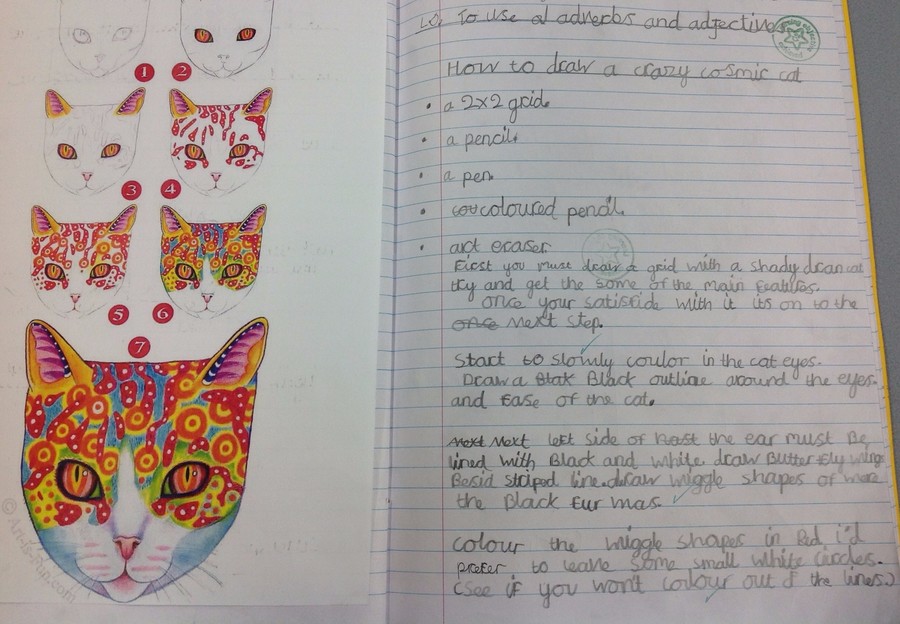 1
2
3
4
5
6
7
© Art-Is-Fun.com
LO To use al adverbs and adjectives
How to draw a crazy cosmic cat
• a 2x2 grid.
• a pencil.
• a pen
• coloured pencil.
• art eraser
First you must draw a grid with a shady
try and get the some of the main features.
once your satisfide with it its on to the
once next step.
Start to slowly coulor in the cat eyes.
Draw a Black outline around the eyes.
and Ease of the cat.
Next left side of the ear must Be
lined with Black and white draw Butterfly wing
Besid striped line draw wiggle shapes of more
the Black fur mas.
colour the wiggle shapes in Red i'd
prefer to leave some small white circles.
(see if you won't colour out of the lines.)